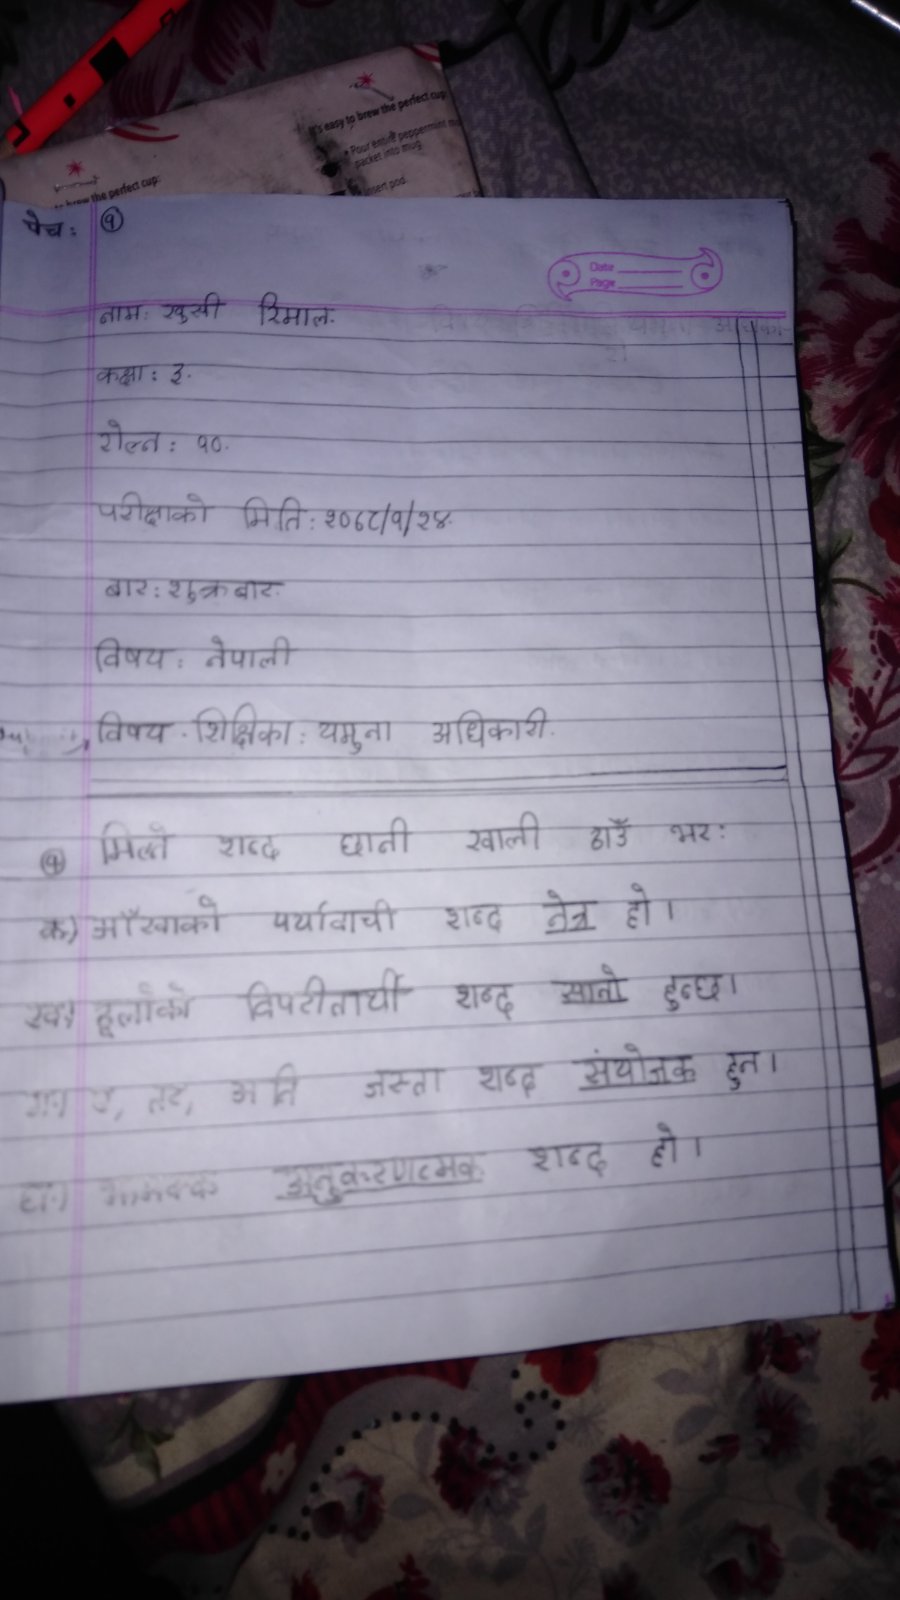 It's easy to brew the perfect cup
• Pour entire peppermint
packet into mug
insert pod.
brew the perfect cup:
पेच: १
Date
Page
नाम: खुसी रिमाल.
कक्षा: ३.
रोल्न: १०.
परीक्षाको मिति: २०७८/१/२४.
बार: शुक्रबार.
विषय: नेपाली
विषय. शिक्षिका: यमुना अधिकारी.
१ मिल्ने शब्द छानी खाली ठाउँ भर:
क) आँखाको पर्यावाची शब्द नेत्र हो ।
ख) ठूलोको विपरीतार्थी शब्द सानो हुन्छ।
ग) र, तर, अनि जस्ता शब्द संयोजक हुन ।
घ) अनुकरणत्मक शब्द हो ।